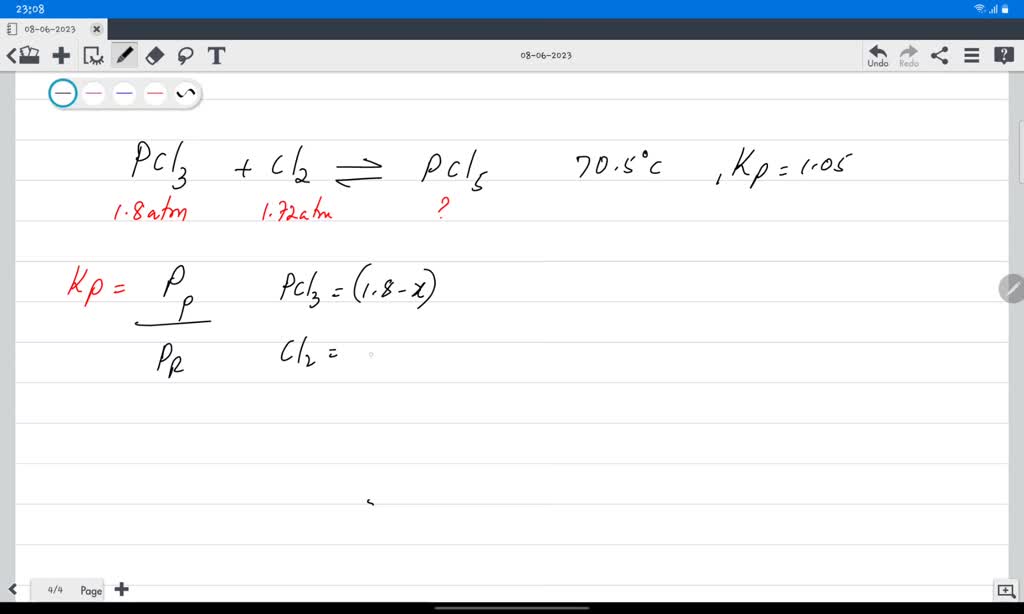 23:08
08-06-2023
T
08-06-2023
Undo
Redo
PCl3 + Cl2 ⇌ PCl5 70.5°C , Kp = 1.05
1.8 atm 1.72 atm ?
Kp = Pp / PR
PCl3 = (1.8 - x)
Cl2 =
4/4 Page